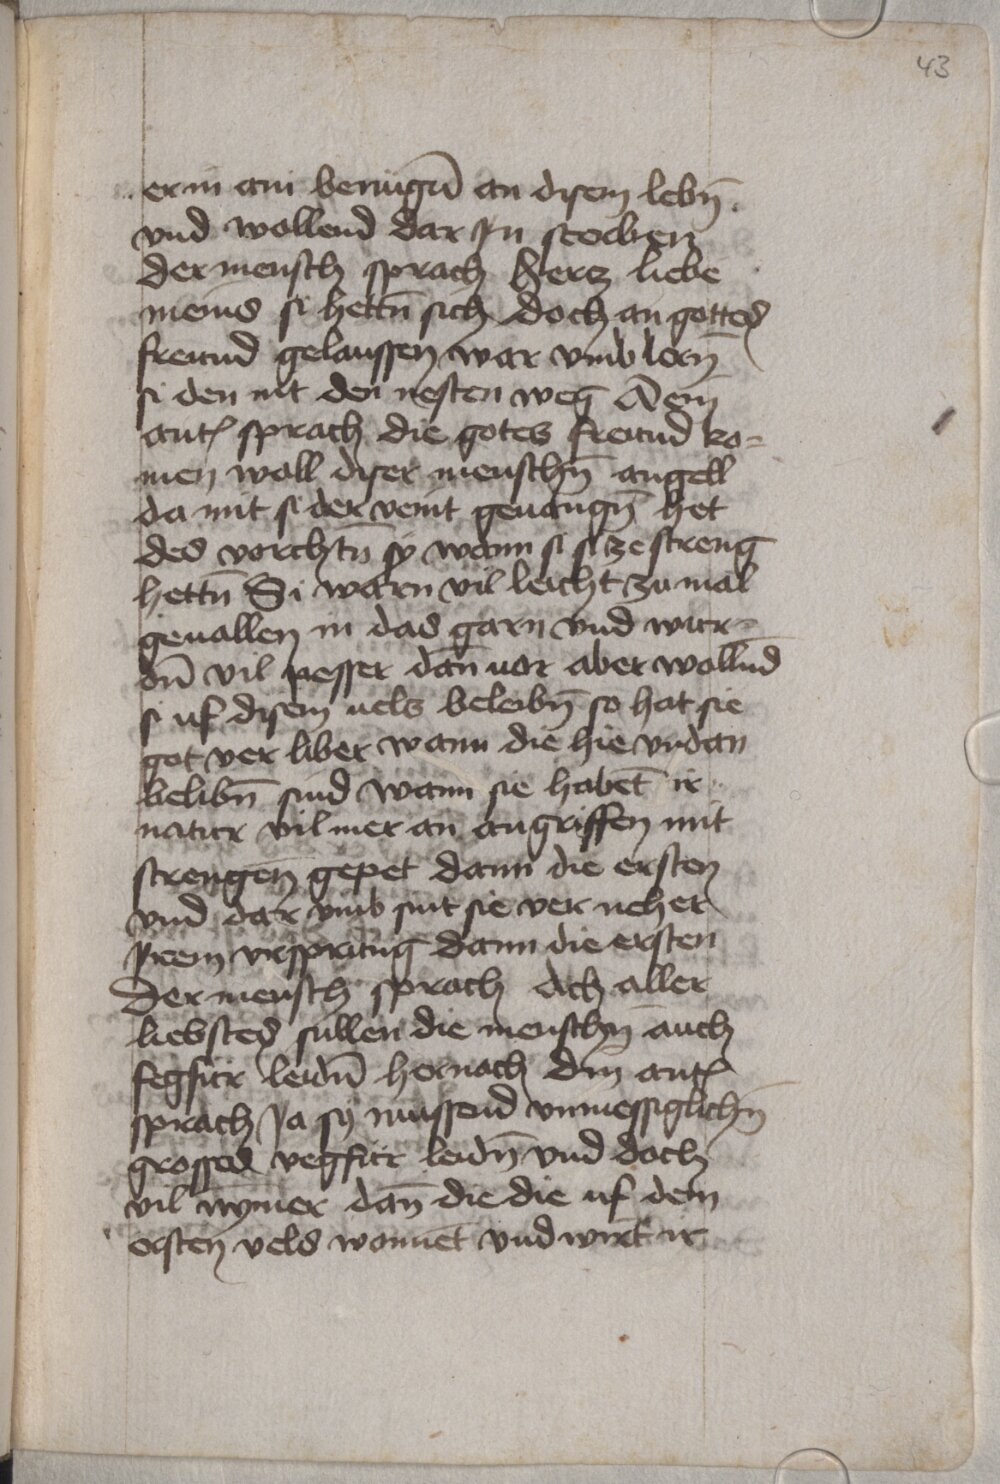 43
er in ain benugn̄ an disem lebn̄
vnd wollend dar Jn stecken
der mensch sprach hercz liebe
meins si hettn̄ sich doch an gottes
freund gelaussen war vmb lern̄
si den nit den nesten weg Dem
antꝛ sprach die gotes freund ko=
men woll diser menschn̄ angell
da mit si der veint geuangn̄ het
des vorchtn̄ sy wann si si ze streng
hettn̄ Si warn vil leicht zu mal
geuallen in das garn vnd wur=
dn̄ vil pesser dan̄ uor aber wollnd
si uf disem uels beleibn̄ so hat sie
got ver liber wann die hie vndan
belibn̄ sind wann sie habet̄ ir
natur vil mer an angriffen mit
strengen̄ gepet dann die ersten
vnd dar vmb sint sie ver neher
Jrem vrsprung dann die ersten
Der mensch sprach Ach aller
liebstes sullen die menschn̄ auch
fegfeur leidn̄ hernach Dm̄ antꝛ
sprach Ja sy mussend vnmessiglichn̄
grosses vegfeur leidn̄ vnd doch
vil mynner dan̄ die die uf dem
ersten vels wonnet̄ vnd wirt ir